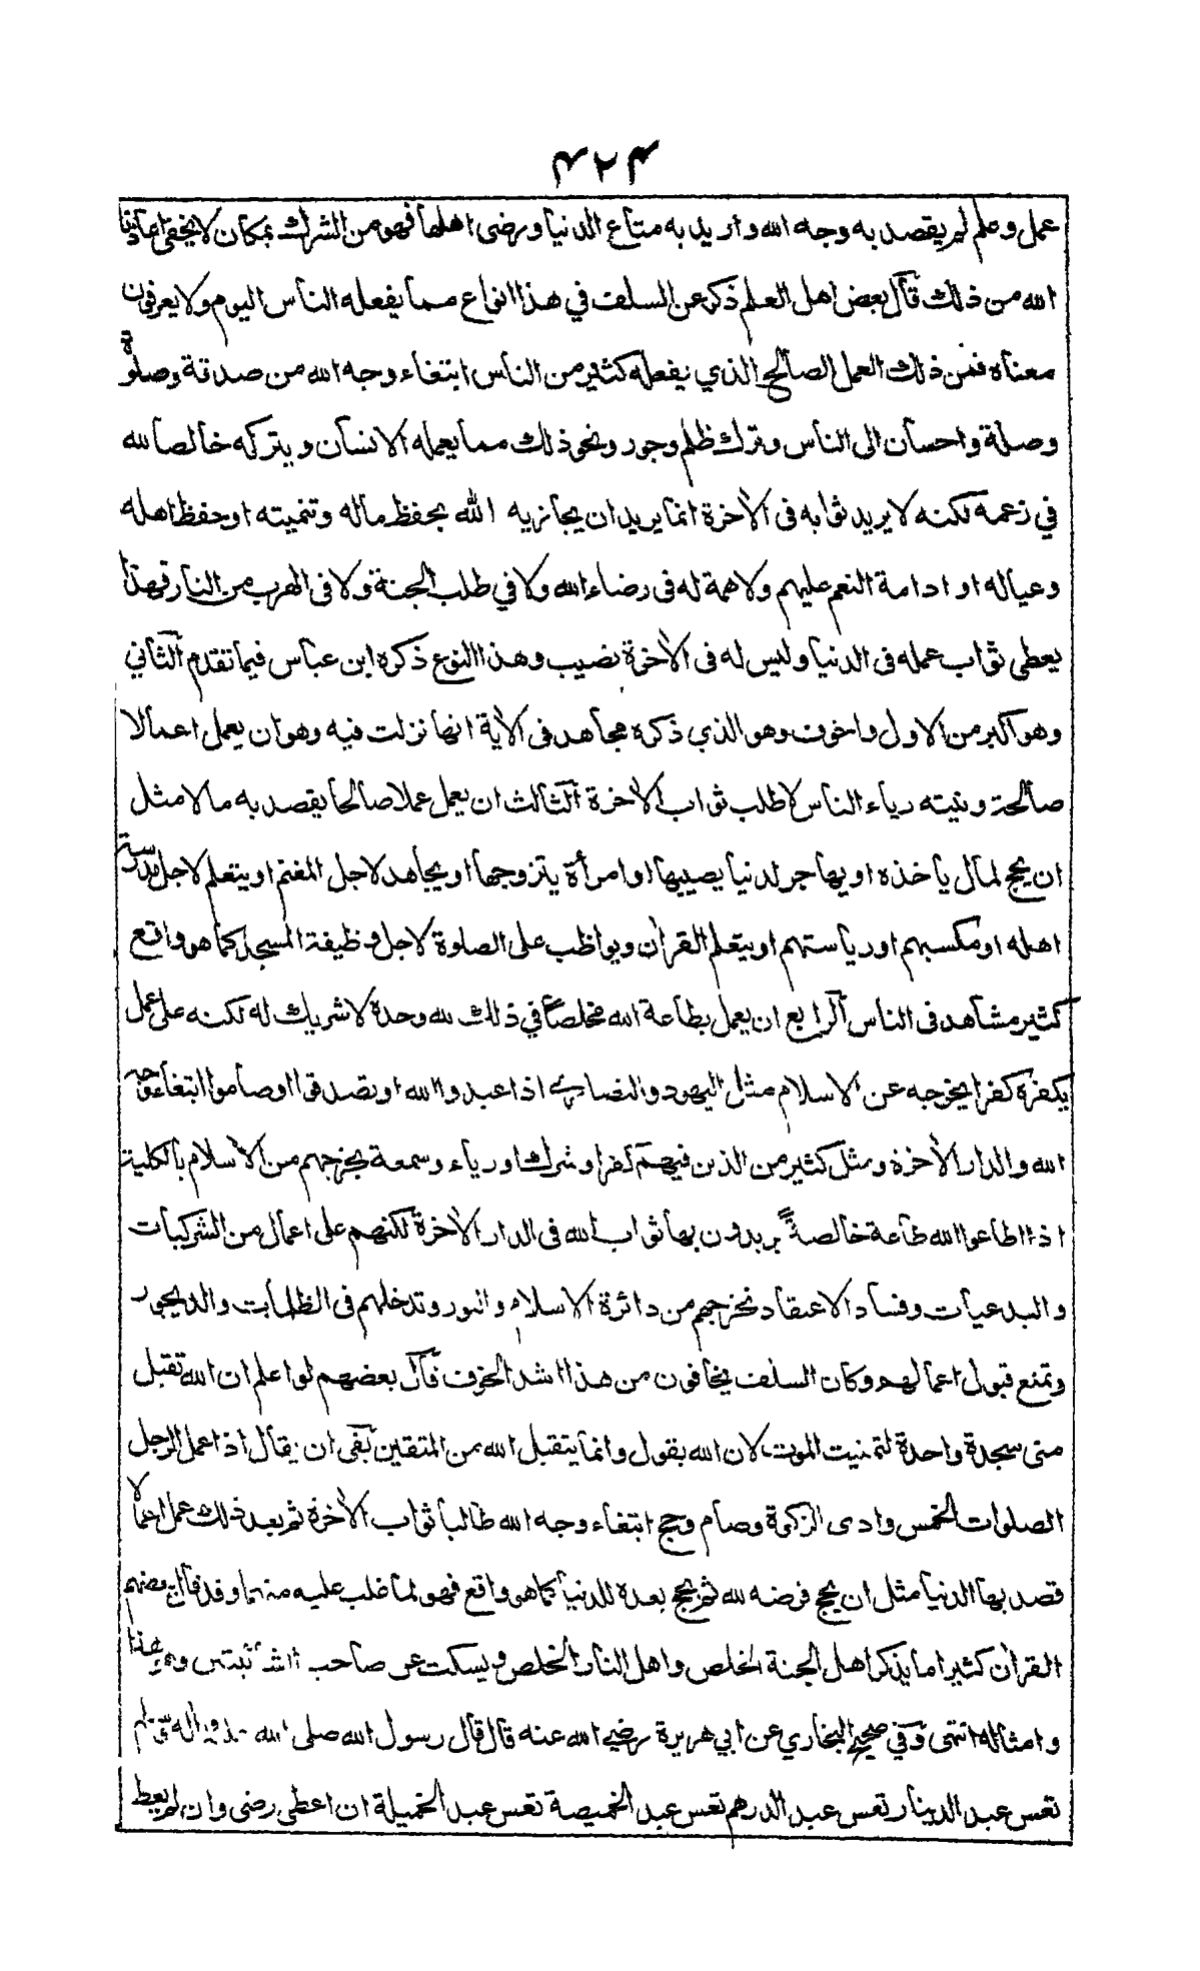 ۴۲۴
عمل وعلم لم يقصد به وجه الله واريد به متاع الدنيا ورضى اهلها فهو من الشرك بمكان لا يخفى اعاذنا
الله من ذلك قال بعض اهل العلم ذكر عن السلف في هذا انواع مما يفعله الناس اليوم ولا يعرفون
معناه فمن ذلك العمل الصالح الذي يفعله كثير من الناس ابتغاء وجه الله من صدقة وصلوة
وصلة واحسان الى الناس وترك ظلم وجور ونحو ذلك مما يعمله الانسان ويتركه خالصا لله
في زعمه لكنه لا يريد ثوابه فى الأخرة انما يريد ان يجازيه الله بحفظ ماله وتنميته او حفظ اهله
وعياله او ادامة النعم عليهم ولا همة له فى رضاء الله ولا في طلب الجنة ولا فى الهرب من النار فهذا
يعطى ثواب عمله فى الدنيا وليس له فى الأخرة نصيب وهذا النوع ذكره ابن عباس فيما تقدم الثاني
وهو اكبر من الاول واخوف وهو الذي ذكره مجاهد فى الأية انها نزلت فيه وهو ان يعمل اعمالا
صالحة ونيته رياء الناس لا طلب ثواب الأخرة الثالث ان يعمل عملا صالحا يقصد به مالا مثل
ان يحج لمال يأخذه او يهاجر لدنيا يصيبها او امرأة يتزوجها او يجاهد لاجل المغنم او يتعلم لاجل مدرسة
اهله او مكسبهم او رياستهم او يتعلم القرأن ويواظب على الصلوة لاجل وظيفة المسجد كما هو واقع
كثير مشاهد فى الناس الرابع ان يعمل بطاعة الله مخلصا في ذلك لله وحدة لا شريك له لكنه على عمل
يكفره كفرا يخرجه عن الاسلام مثل اليهود والنصارى اذا عبدوا الله او تصدقوا او صاموا ابتغاء وجه
الله والدار الأخرة ومثل كثير من الذين فيهم كفر او شرك او رياء وسمعة يخرجهم من الأسلام بالكلية
اذا اطاعوا الله طاعة خالصةً يريدون بها ثواب الله فى الدار الأخرة لكنهم على اعمال من الشركيات
والبدعيات وفساد الاعتقاد تخرجهم من دائرة الاسلام والنور وتدخلهم فى الظلمات والديجور
وتمنع قبول اعمالهم وكان السلف يخافون من هذا اشد الخوف قال بعضهم لو اعلم ان الله تقبل
منى سجدة واحدة لتمنيت الموت لان الله يقول وانما يتقبل الله من المتقين بقى ان يقال اذا عمل الرجل
الصلوات الخمس وادى الزكوة وصام وحج ابتغاء وجه الله طالبا ثواب الأخرة ثم بعد ذلك عمل اعمالا
قصد بها الدنيا مثل ان يحج فرضه لله ثم يحج بعده للدنيا كما هو واقع فهو لما غلب عليه منهما وقد قال بعضهم
القرأن كثيرا ما يذكر اهل الجنة الخلص واهل النار الخلص ويسكت عن صاحب الشائبتين وهو هذا
وامثاله انتهى وفي صحيح البخاري عن ابي هريرة رضي الله عنه قال قال رسول الله صلى الله عليه واله وسلم
تعس عبد الدينار تعس عبد الدرهم تعس عبد الخميصة تعس عبد الخميلة ان اعطى رضى وان لم يعط